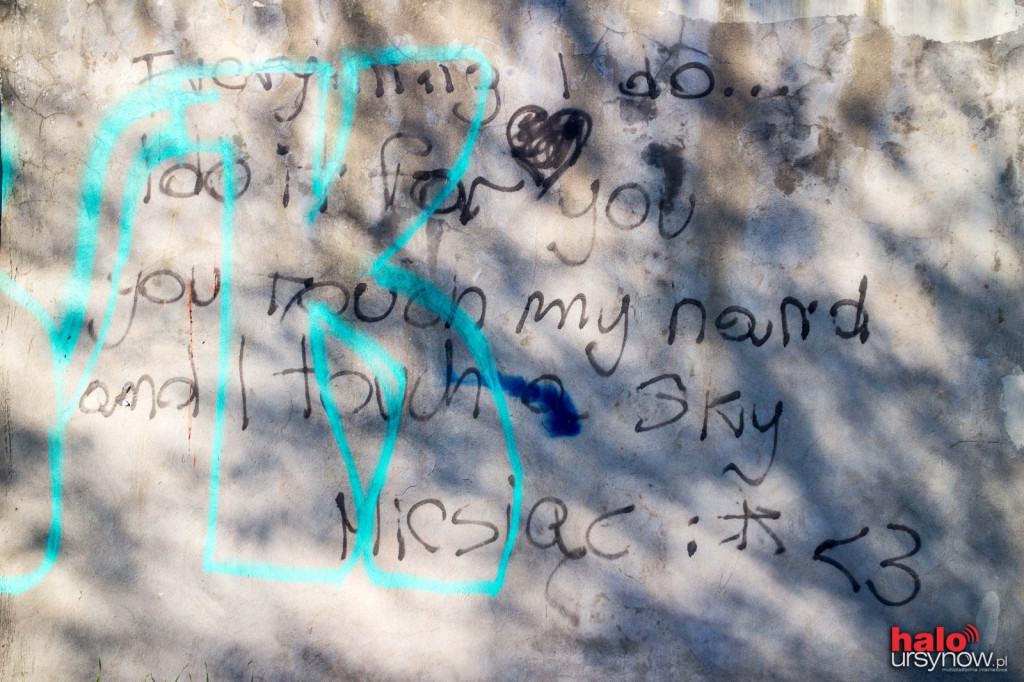 Everything I do...
I do it for you
you touch my hand
and I touch a sky
Miesiąc :* <3
halo
ursynow.pl
multiplatforma internetowa